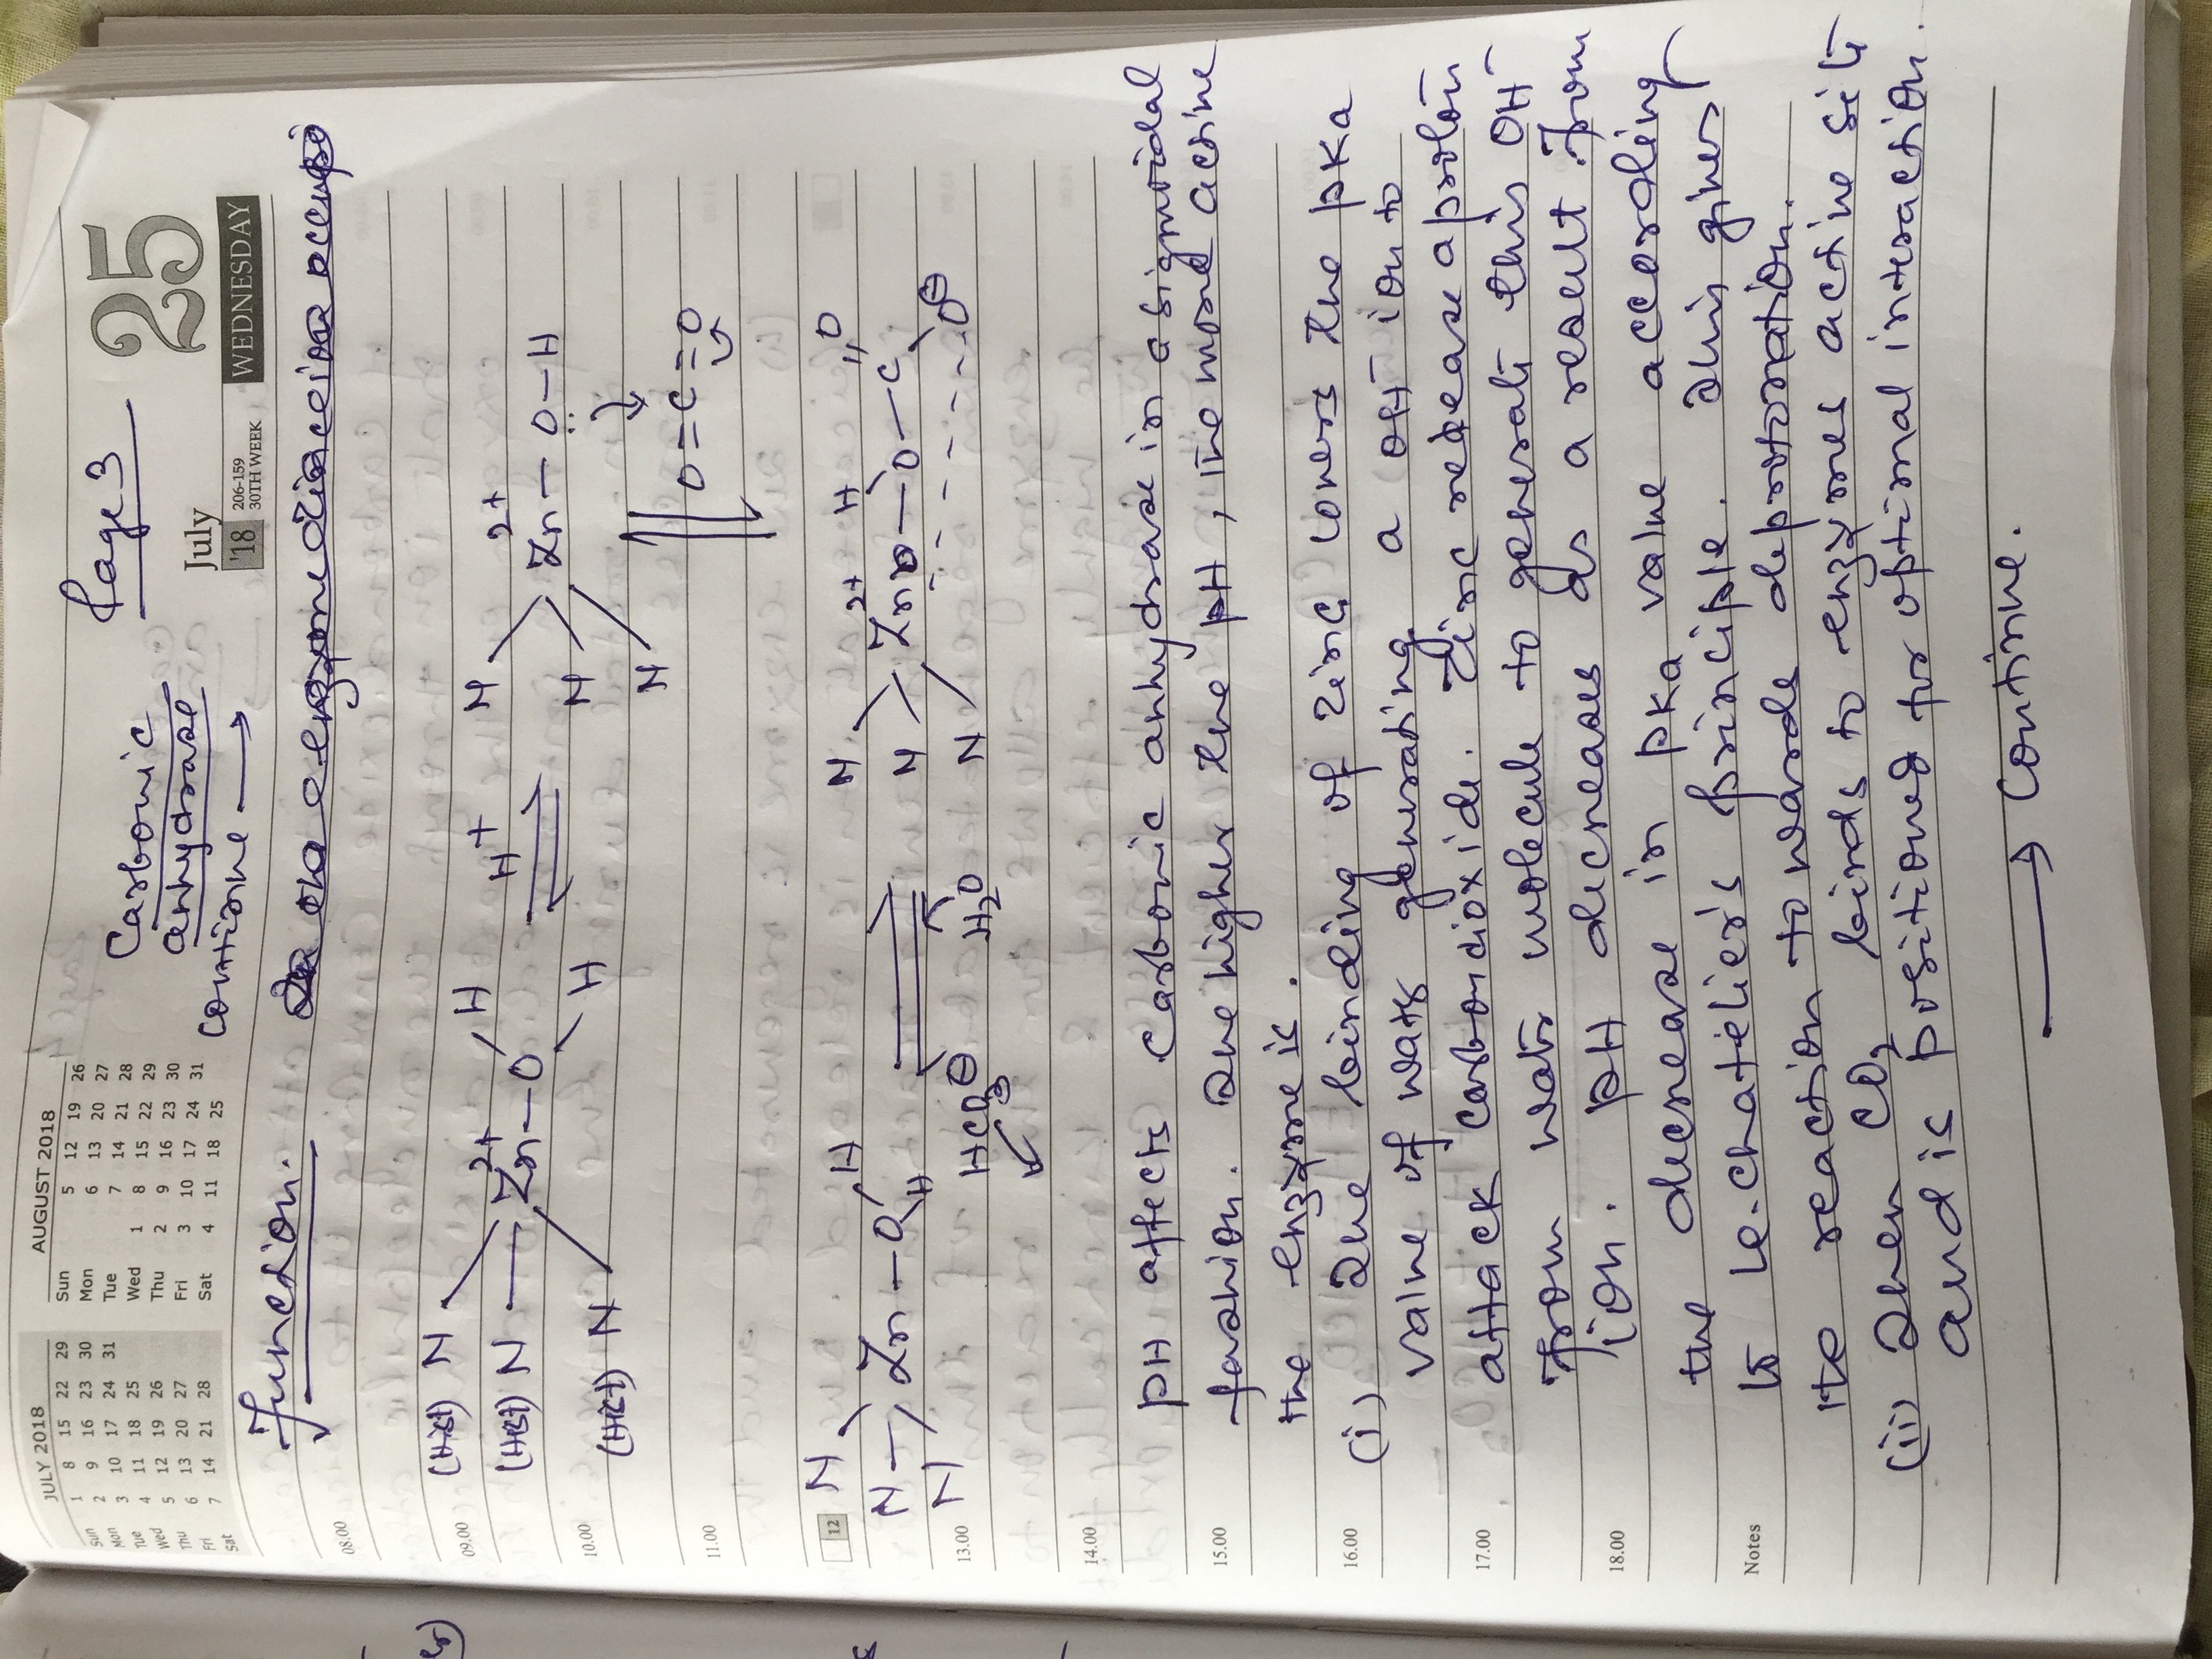 Page 3
Carbonic
anhydrase
continue →
JULY 2018
Sun 1 8 15 22 29
Mon 2 9 16 23 30
Tue 3 10 17 24 31
Wed 4 11 18 25
Thu 5 12 19 26
Fri 6 13 20 27
Sat 7 14 21 28
AUGUST 2018
Sun 5 12 19 26
Mon 6 13 20 27
Tue 7 14 21 28
Wed 1 8 15 22 29
Thu 2 9 16 23 30
Fri 3 10 17 24 31
Sat 4 11 18 25
July
'18
206-159
30TH WEEK
25
WEDNESDAY
Function.
08.00
09.00
10.00
11.00
12
13.00
14.00
15.00
16.00
17.00
18.00
Notes
(His) N
(His) N
(His) N
Zn 2+ — O
H
H
H+
N
N
N
Zn 2+ — O — H
O = C = O
N
N
N
Zn — O
H
H
HCO3 ⊖
H2O
N
N
N
2+ H O
Zn O — O — C
O ⊖
pH affects carbonic anhydrase in a sigmoidal
fashion. The higher the pH, the more active
the enzyme is.
(i) The binding of zinc lowers the pKa
value of wate generating a OH ion to
attack carbondioxide. Zinc release a proton
from water molecule to generate this OH-
ion. pH decreases as a result from
the decrease in pKa value according
to le-chatelier's principle. This gives
the reaction towards deprotonation.
(ii) Then CO2 binds to enzymes active site
and is positioned for optimal interaction.
→ continue.